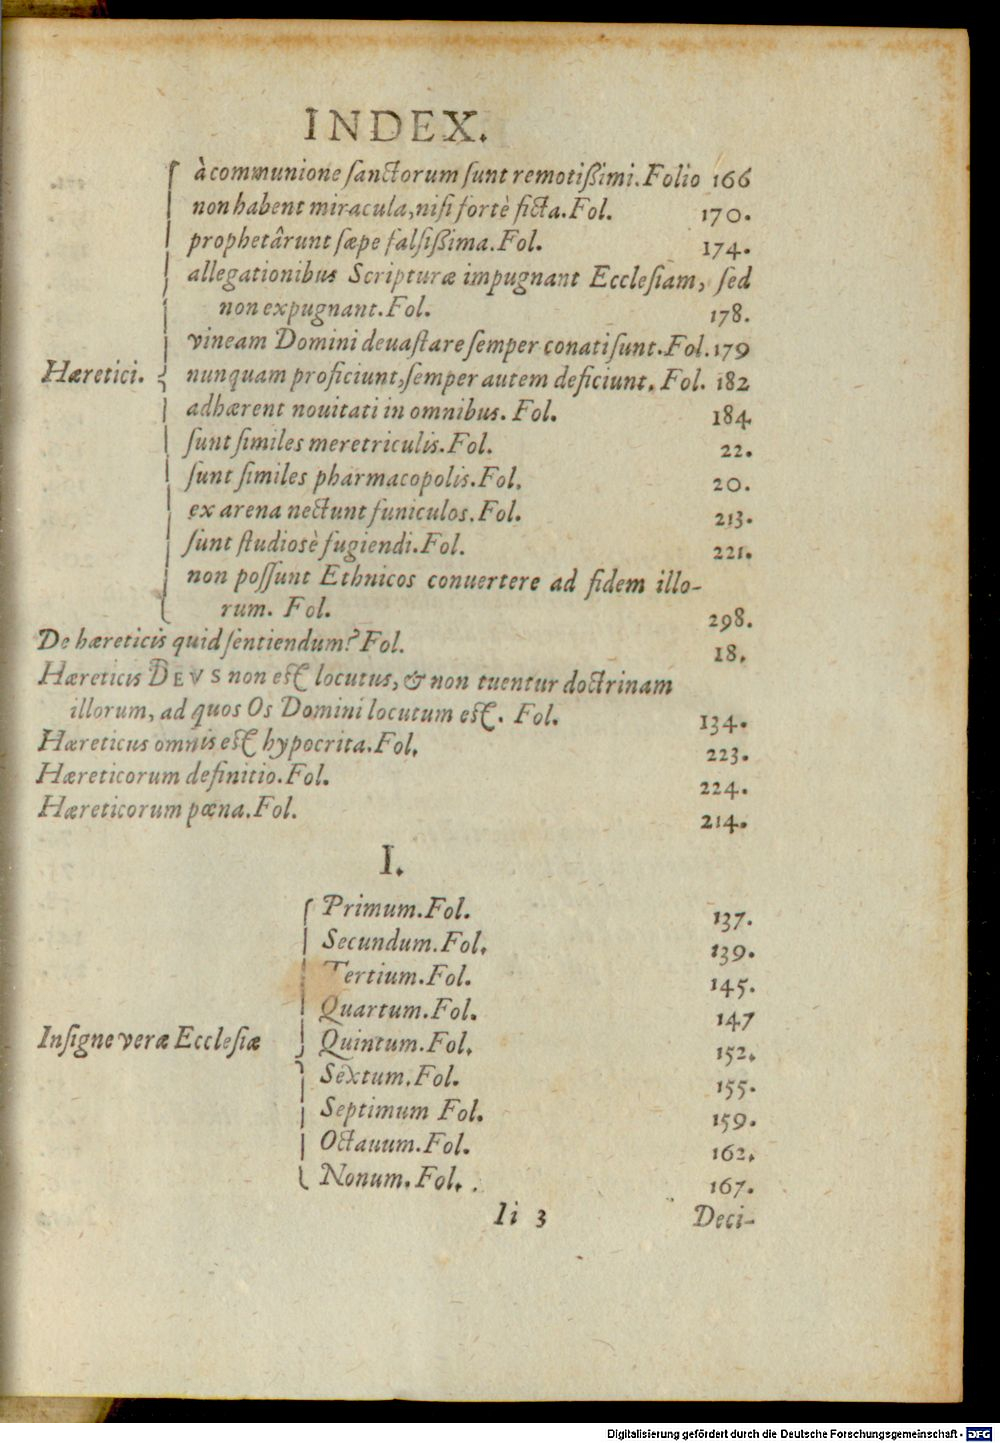 INDEX.
à communione ſanctorum ſunt remotißimi. Folio 166
non habent miracula, niſi fortè ficta. Fol. 170.
prophetârunt ſæpe falſißima. Fol. 174.
allegationibus Scripturæ impugnant Eccleſiam, ſed
non expugnant. Fol. 178.
vineam Domini deuaſtare ſemper conati ſunt. Fol. 179
Hæretici. nunquam proficiunt, ſemper autem deficiunt. Fol. 182
adhærent nouitati in omnibus. Fol. 184
ſunt ſimiles meretriculis. Fol. 22.
ſunt ſimiles pharmacopolis. Fol. 20.
ex arena nectunt funiculos. Fol. 213.
ſunt ſtudiosè fugiendi. Fol. 221.
non poſſunt Ethnicos conuertere ad fidem illo-
rum. Fol. 298.
De hæreticis quid ſentiendum? Fol. 18.
Hæreticis DEVS non eſt locutus, & non tuentur doctrinam
illorum, ad quos Os Domini locutum eſt. Fol. 134.
Hæreticus omnis eſt hypocrita. Fol. 223.
Hæreticorum definitio. Fol. 224.
Hæreticorum pœna. Fol. 214.
I.
Primum. Fol. 137.
Secundum. Fol. 139.
Tertium. Fol. 145.
Quartum. Fol. 147
Inſigne veræ Eccleſiæ Quintum. Fol. 152.
Sextum. Fol. 155.
Septimum Fol. 159.
Octauum. Fol. 162.
Nonum. Fol. 167.
Ii 3 Deci-
Digitalisierung gefördert durch die Deutsche Forschungsgemeinschaft - DFG